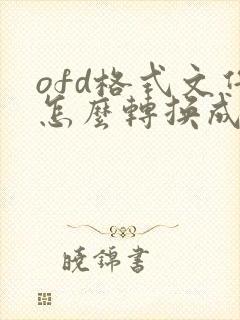 ofd格式文件
怎麼轉換成
曉錦書